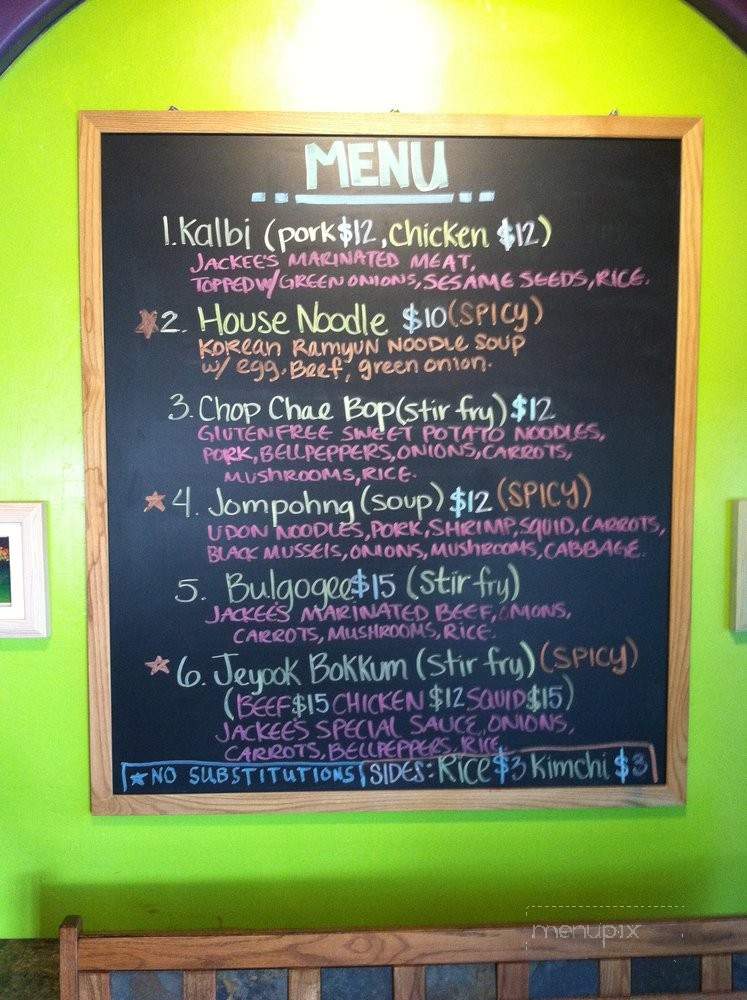 MENU
1. Kalbi (pork $12, chicken $12)
JACKEE'S MARINATED MEAT,
TOPPED W/ GREEN ONIONS, SESAME SEEDS, RICE.
2. House Noodle $10 (SPICY)
KOREAN RAMYUN NOODLE SOUP
w/ egg, Beef, green onion.
3. Chop Chae Bop (stir fry) $12
GLUTENFREE SWEET POTATO NOODLES,
PORK, BELLPEPPERS, ONIONS, CARROTS,
MUSHROOMS, RICE.
4. Jompohng (soup) $12 (SPICY)
UDON NOODLES, PORK, SHRIMP, SQUID, CARROTS,
BLACK MUSSELS, ONIONS, MUSHROOMS, CABBAGE.
5. Bulgogee $15 (stir fry)
JACKEE'S MARINATED BEEF, ONIONS,
CARROTS, MUSHROOMS, RICE.
6. Jeyook Bokkum (stir fry) (SPICY)
(BEEF $15 CHICKEN $12 SQUID $15)
JACKEE'S SPECIAL SAUCE, ONIONS,
CARROTS, BELLPEPPERS, RICE
★NO SUBSTITUTIONS SIDES: Rice $3 Kimchi $3
menupix